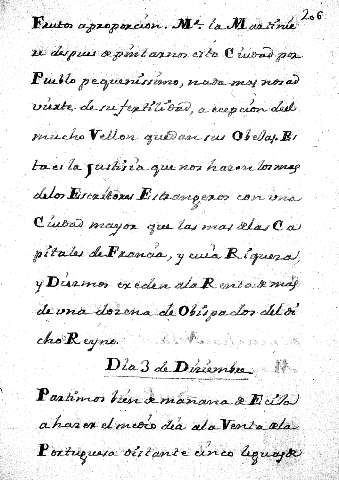 206
Frutos aproporcion. Mr. la Martinie
re despues de pintarnos esta Ciudad por
Pueblo pequenissimo, nada mas nos ad
vierte de su fertilidad, a ecepcion del
mucho Vellon que dan sus Obejas. Es
ta es la Justisia que nos hazen los mas
de los Escritores Estrangeros con una
Ciudad mayor que las mas de las Ca
pitales de Francia, y cuia Riqueza,
y Diezmos exceden a la Renta de mas
de una dozena de Obispados del di
cho Reyno.
Dia 3 de Diziembre
Partimos bien de mañana de Ecija
a hazer el medio dia a la Venta de la
Portuguesa distante cinco leguas de